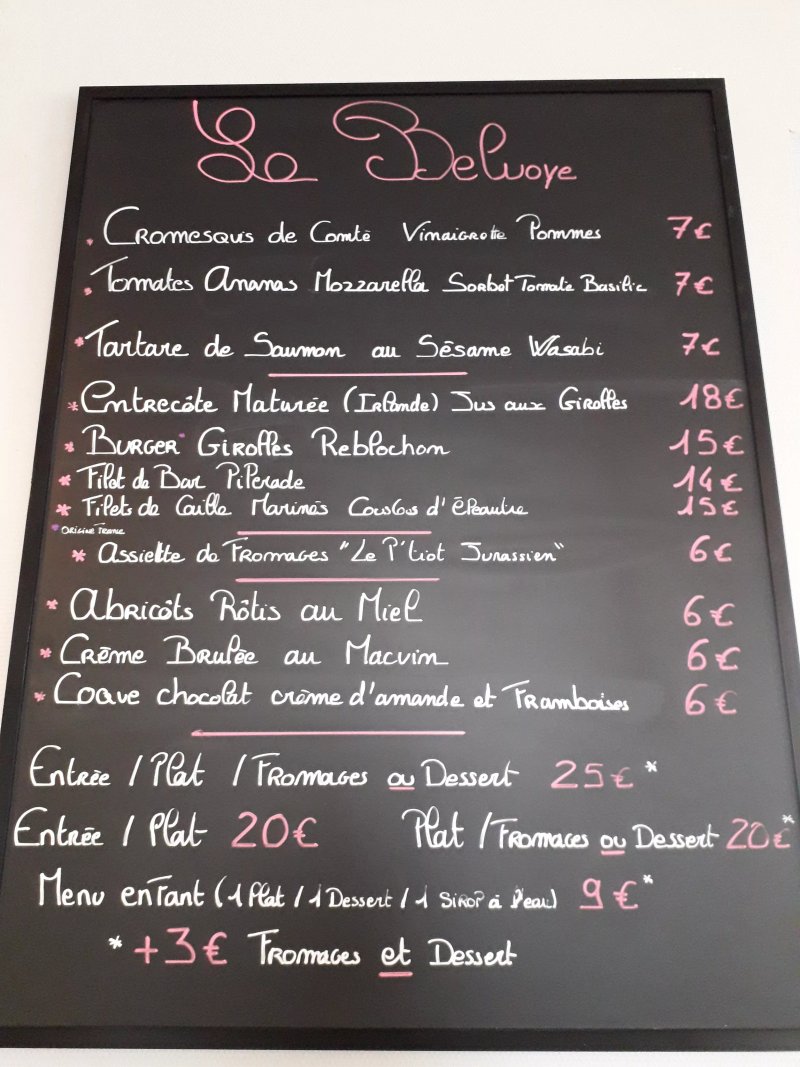 Le Belvoye
* Cromesquis de Comté Vinaigrette Pommes 7€
* Tomates Ananas Mozzarella Sorbet Tomate Basilic 7€
* Tartare de Saumon au Sésame Wasabi 7€
* Entrecôte Maturée (Irlande) Jus aux Girolles 18€
* Burger* Girolles Reblochon 15€
* Filet de Bar Piperade 14€
* Filets de Caille Marinés Couscous d'épeautre 15€
* Origine France
* Assiette de Fromages "Le P'tiot Jurassien" 6€
* Abricôts Rôtis au Miel 6€
* Crème Brulée au Macvin 6€
* Coque chocolat crème d'amande et Framboises 6€
Entrée / Plat / Fromages ou Dessert 25€*
Entrée / Plat 20€ Plat / Fromages ou Dessert 20€*
Menu enfant (1 Plat / 1 Dessert / 1 Sirop à l'eau) 9€*
* +3€ Fromages et Dessert